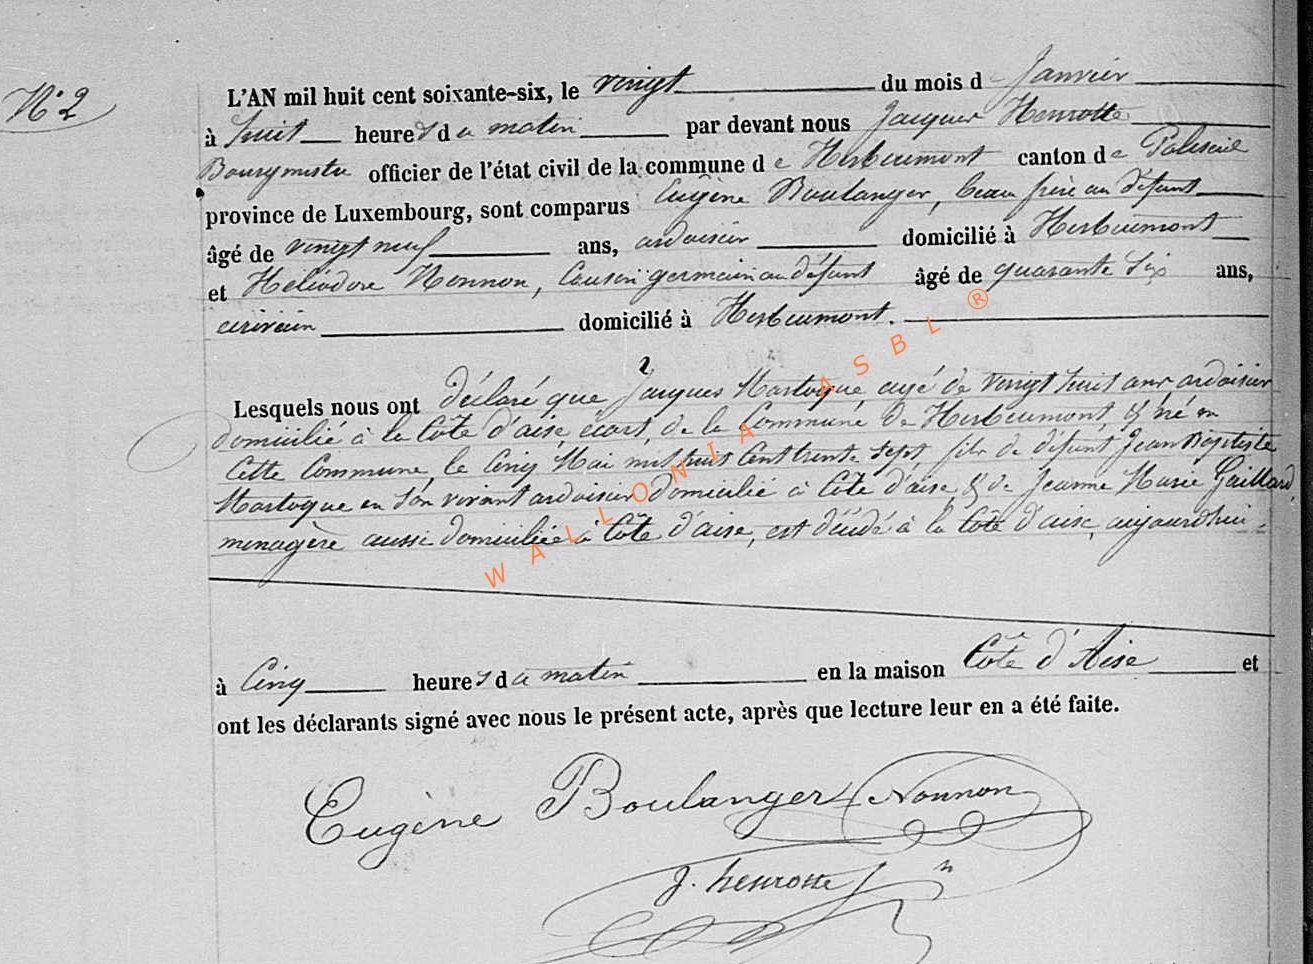 N° 2
L'AN mil huit cent soixante-six, le vingt du mois d e Janvier
à huit heures du matin par devant nous Jacques Henrotte
Bourgmestre officier de l'état civil de la commune de Herbeumont canton de Paliseul
province de Luxembourg, sont comparus Eugène Boulanger, beau frère au défunt
âgé de vingt neuf ans, ardoisier domicilié à Herbeumont
et Héliodore Nonnon, Cousin germain au défunt âgé de quarante six ans,
écrivain domicilié à Herbeumont.
Lesquels nous ont déclaré que Jacques Martoque, agé de vingt huit ans ardoisier
domicilié à la Côte d'aise, écart, de la Commune de Herbeumont, & né en
cette Commune, le Cinq Mai mil huit Cent trente sept fils de défunt Jean Baptiste
Martoque en son vivant ardoisier domicilié à Côte d'aise, & de Jeanne Marie Gaillard,
ménagère aussi domiciliée à Côte d'aise, est décédé à la Côte d'aise, aujourdhui
à Cinq heures du matin en la maison Côte d'Aise et
ont les déclarants signé avec nous le présent acte, après que lecture leur en a été faite.
Eugène Boulanger Nonnon
J. henrotte
WALLONIA ASBL ®